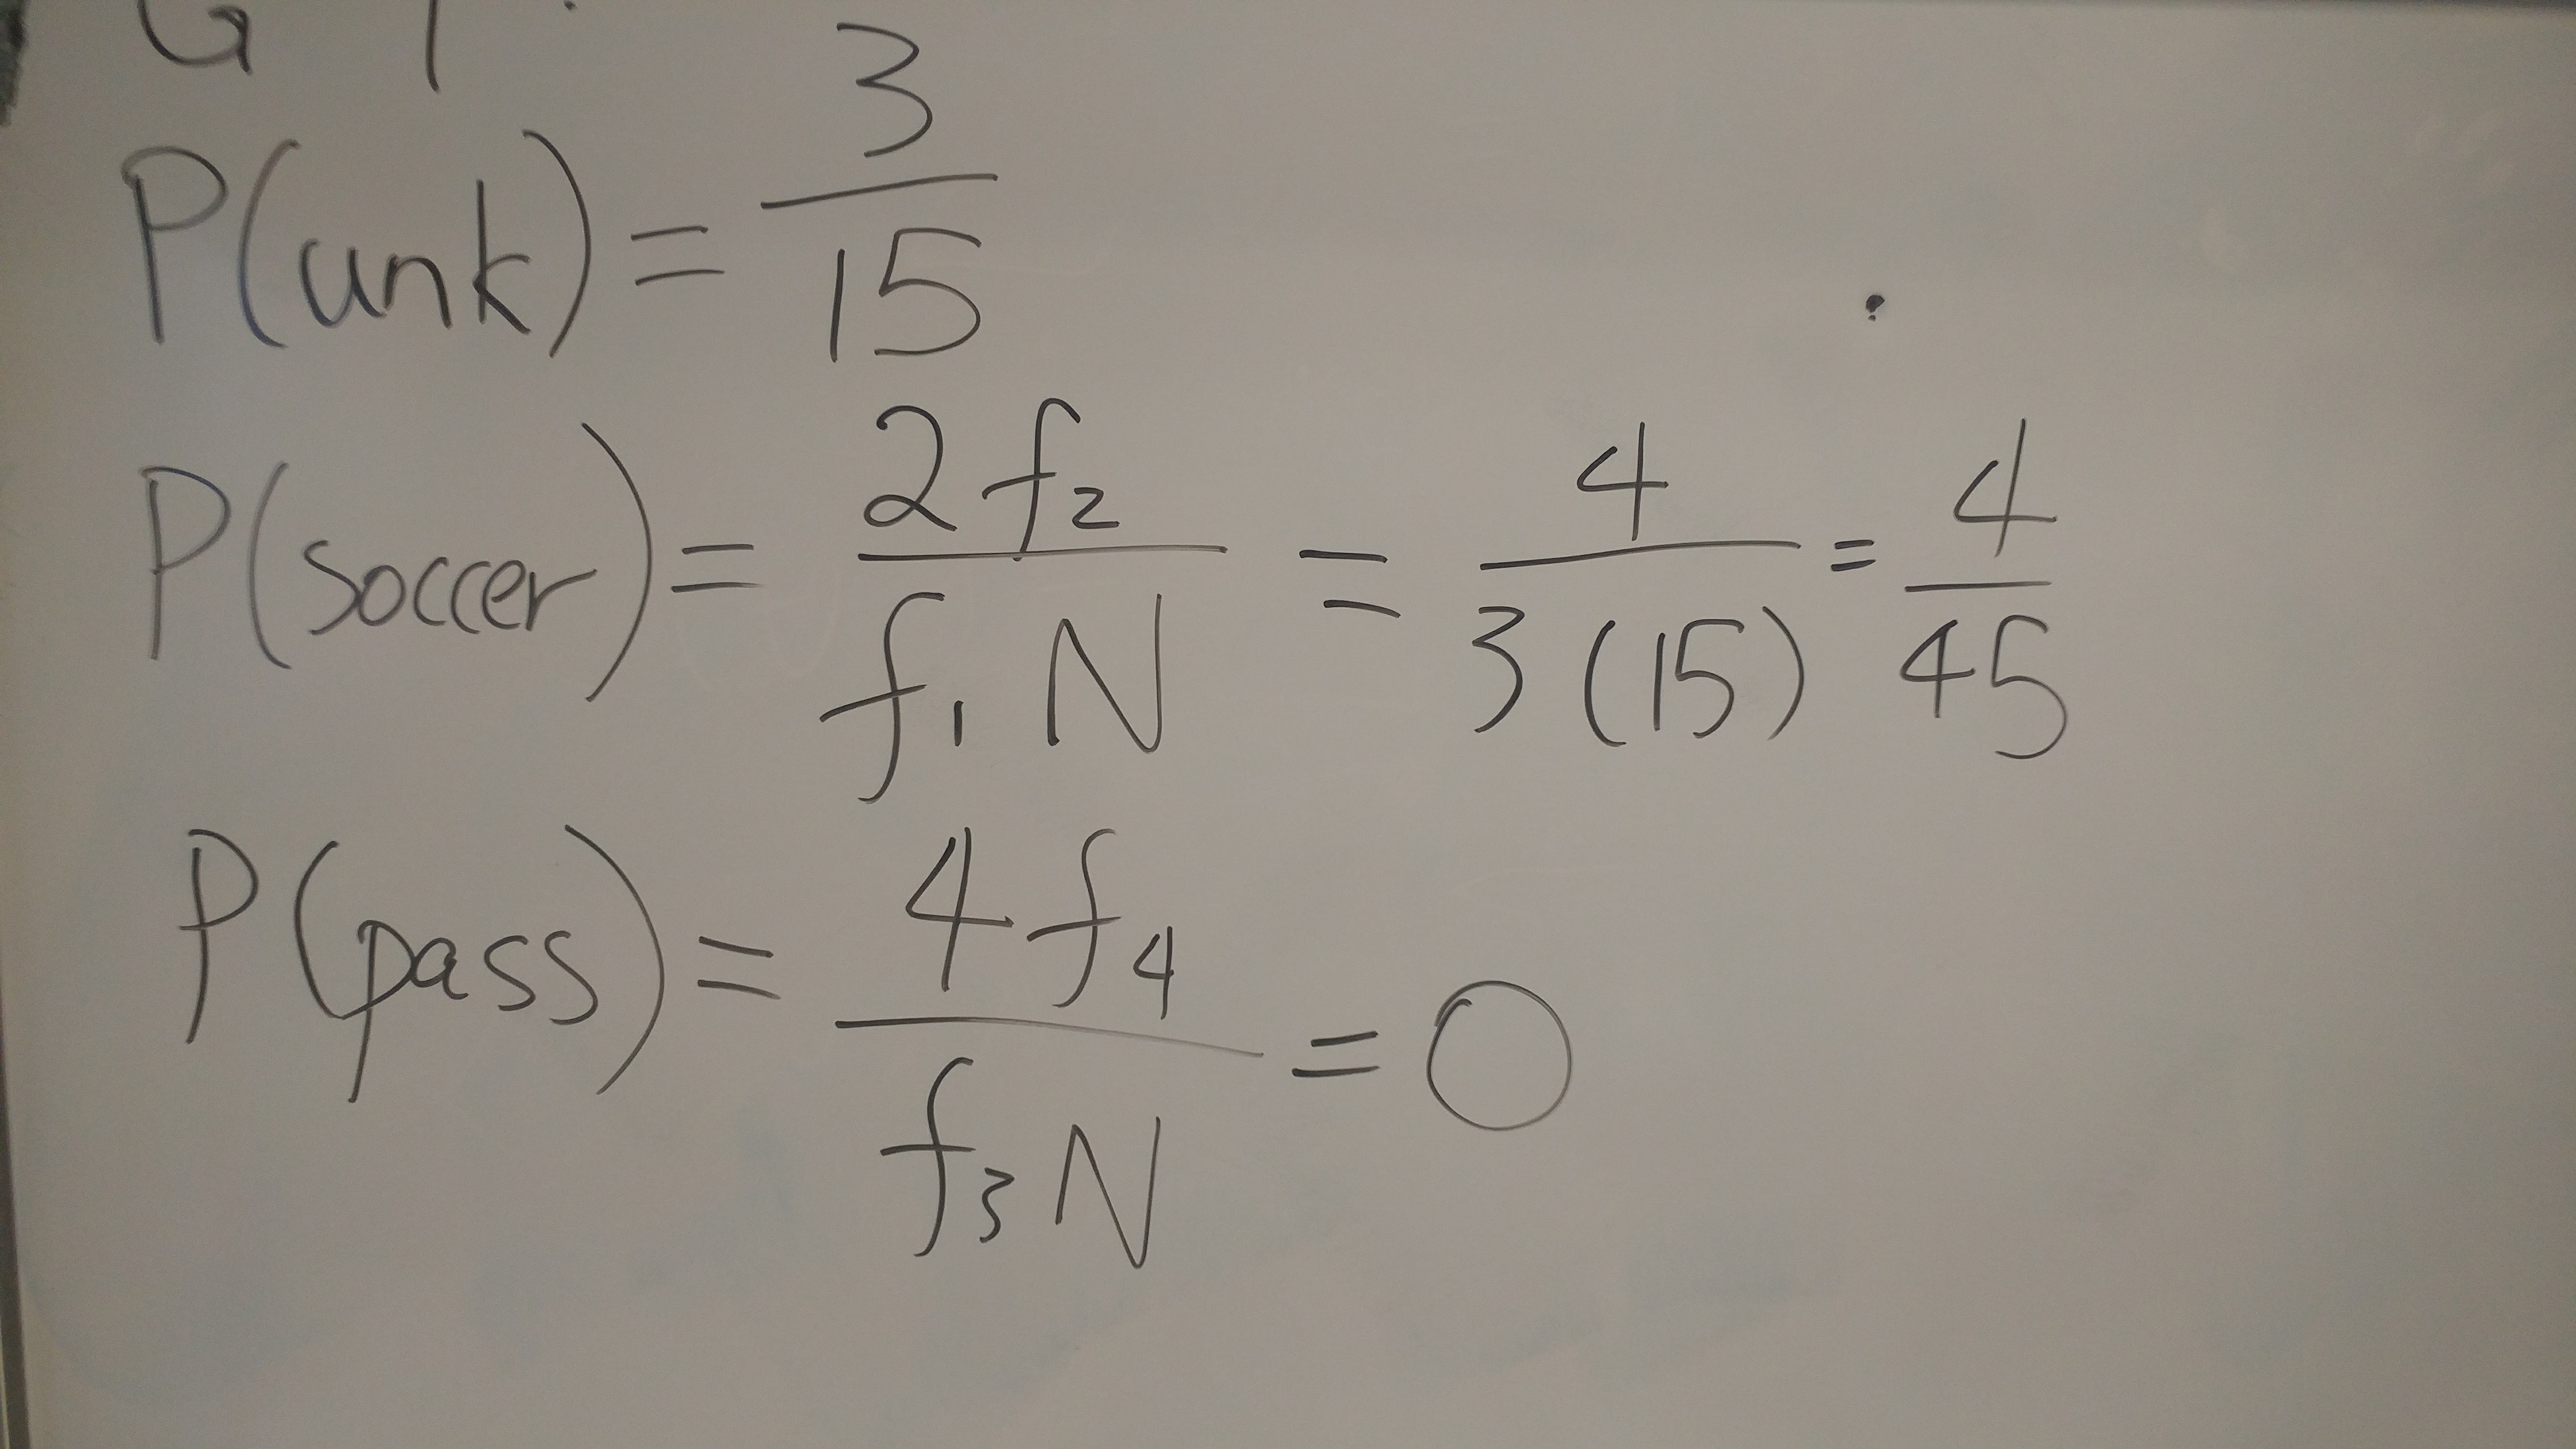 G T :
P(unk) = 3/15
P(soccer) = 2f₂/f₁N = 4/3(15) = 4/45
P(pass) = 4f₄/f₃N = 0